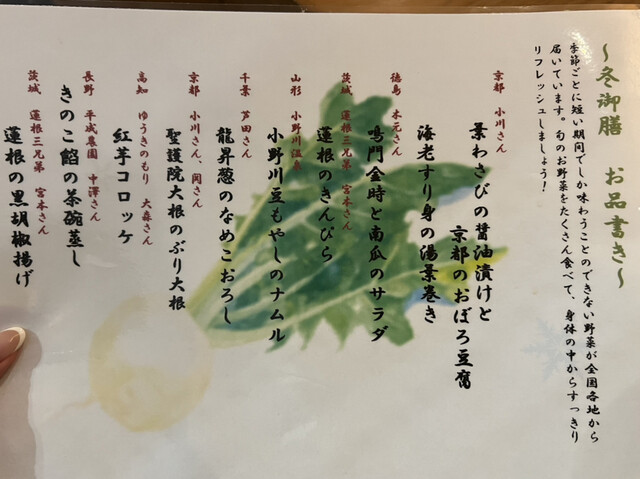 ～冬御膳　お品書き～
季節ごとに短い期間でしか味わうことのできない野菜が全国各地から
届いています。旬のお野菜をたくさん食べて、身体の中からすっきり
リフレッシュしましょう！
京都　小川さん
葉わさびの醤油漬けと
京都のおぼろ豆腐
海老すり身の湯葉巻き
徳島　木元さん
鳴門金時と南瓜のサラダ
茨城　蓮根三兄弟　宮本さん
蓮根のきんぴら
山形　小野川温泉
小野川豆もやしのナムル
千葉　芦田さん
龍昇葱のなめこおろし
京都　小川さん、岡さん
聖護院大根のぶり大根
高知　ゆうきのもり　大森さん
紅芋コロッケ
長野　平成農園　中澤さん
きのこ餡の茶碗蒸し
茨城　蓮根三兄弟　宮本さん
蓮根の黒胡椒揚げ